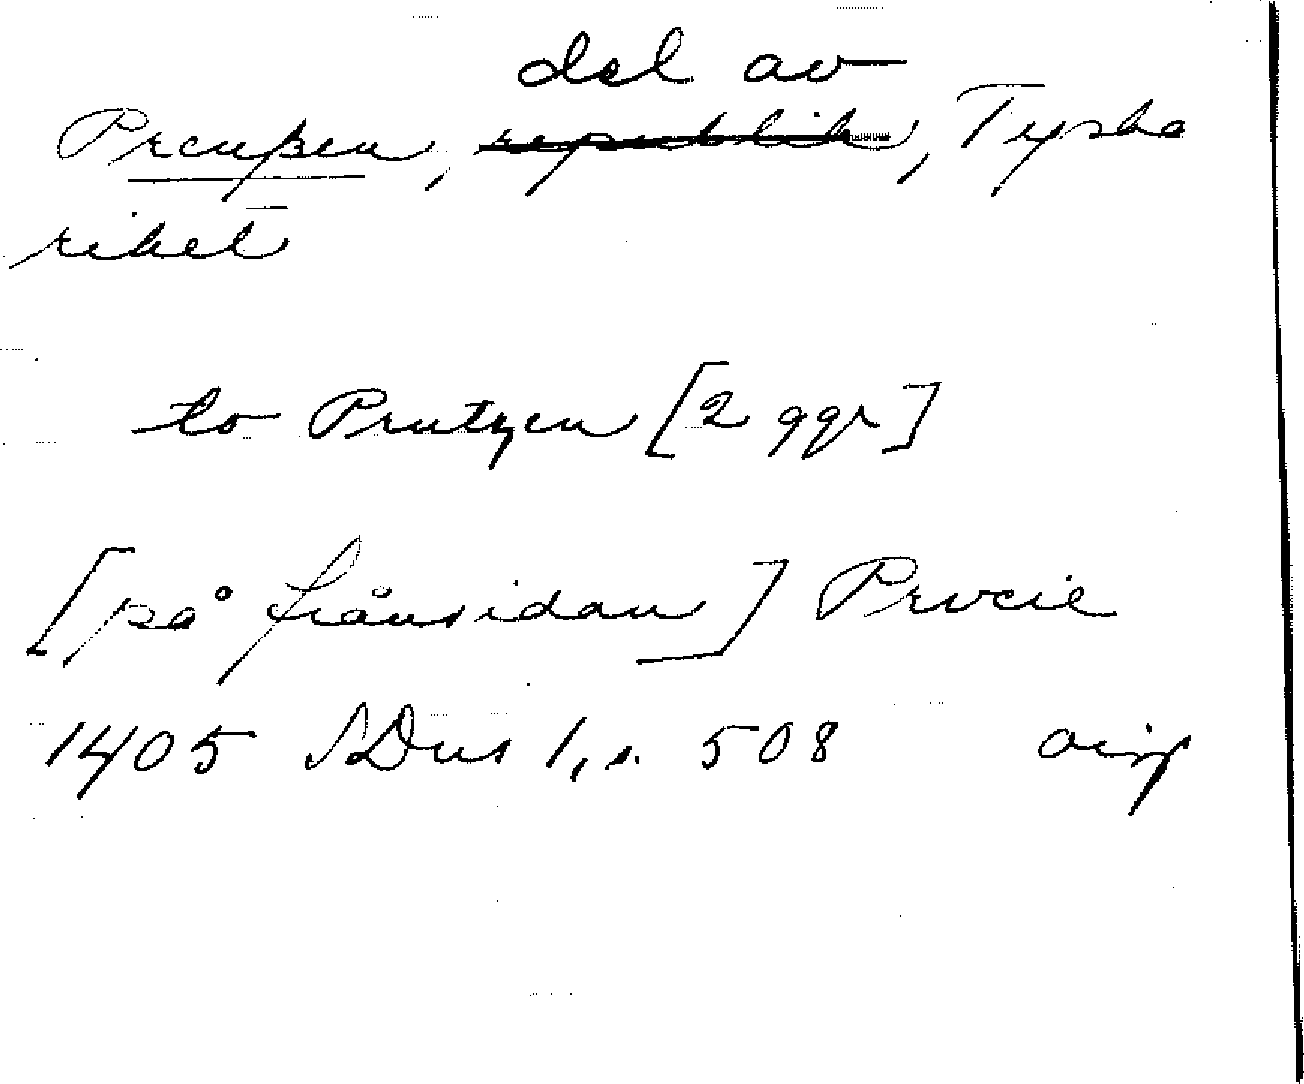 del av
Preußen, republik, Tyska
riket
to Prutzen [2 ggr]
[på frånsidan] Prvcie
1405 SDns 1, s. 508 or